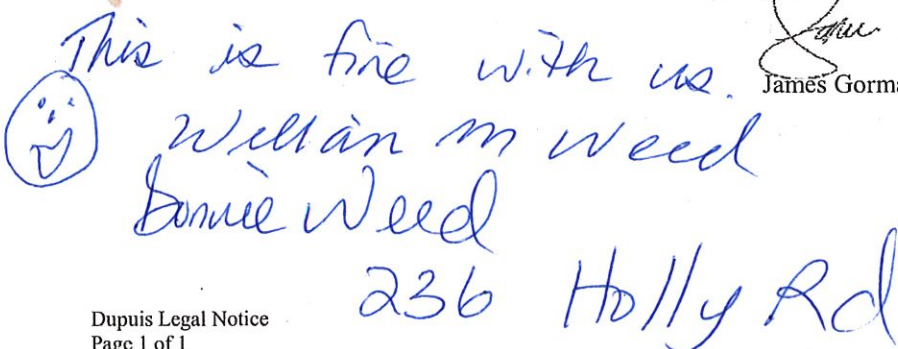 This is fine with us.
James Gorma
William M Weed
Bonnie Weed
236 Holly Rd
Dupuis Legal Notice
Page 1 of 1